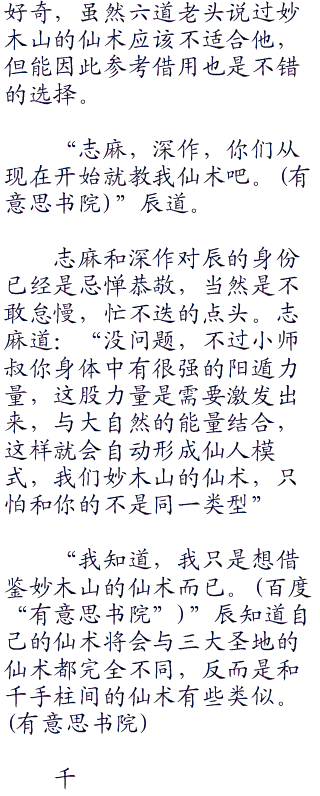 好奇，虽然六道老头说过妙
木山的仙术应该不适合他，
但能因此参考借用也是不错
的选择。
“志麻，深作，你们从
现在开始就教我仙术吧。(有
意思书院)”辰道。
志麻和深作对辰的身份
已经是忌惮恭敬，当然是不
敢怠慢，忙不迭的点头。志
麻道：“没问题，不过小师
叔你身体中有很强的阳遁力
量，这股力量是需要激发出
来，与大自然的能量结合，
这样就会自动形成仙人模
式，我们妙木山的仙术，只
怕和你的不是同一类型”
“我知道，我只是想借
鉴妙木山的仙术而已。(百度
“有意思书院”)”辰知道自
己的仙术将会与三大圣地的
仙术都完全不同，反而是和
千手柱间的仙术有些类似。
(有意思书院)
千